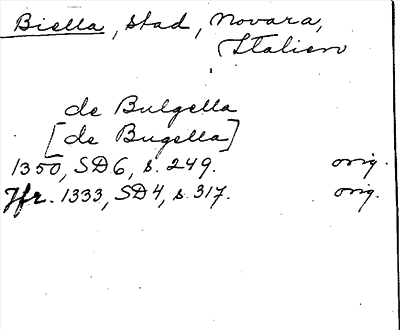 Biella, stad, Novara,
Italien
de Bulgella
[de Bugella]
1350, SD6, s. 249. orig.
Jfr. 1333, SD4, s. 317. orig.